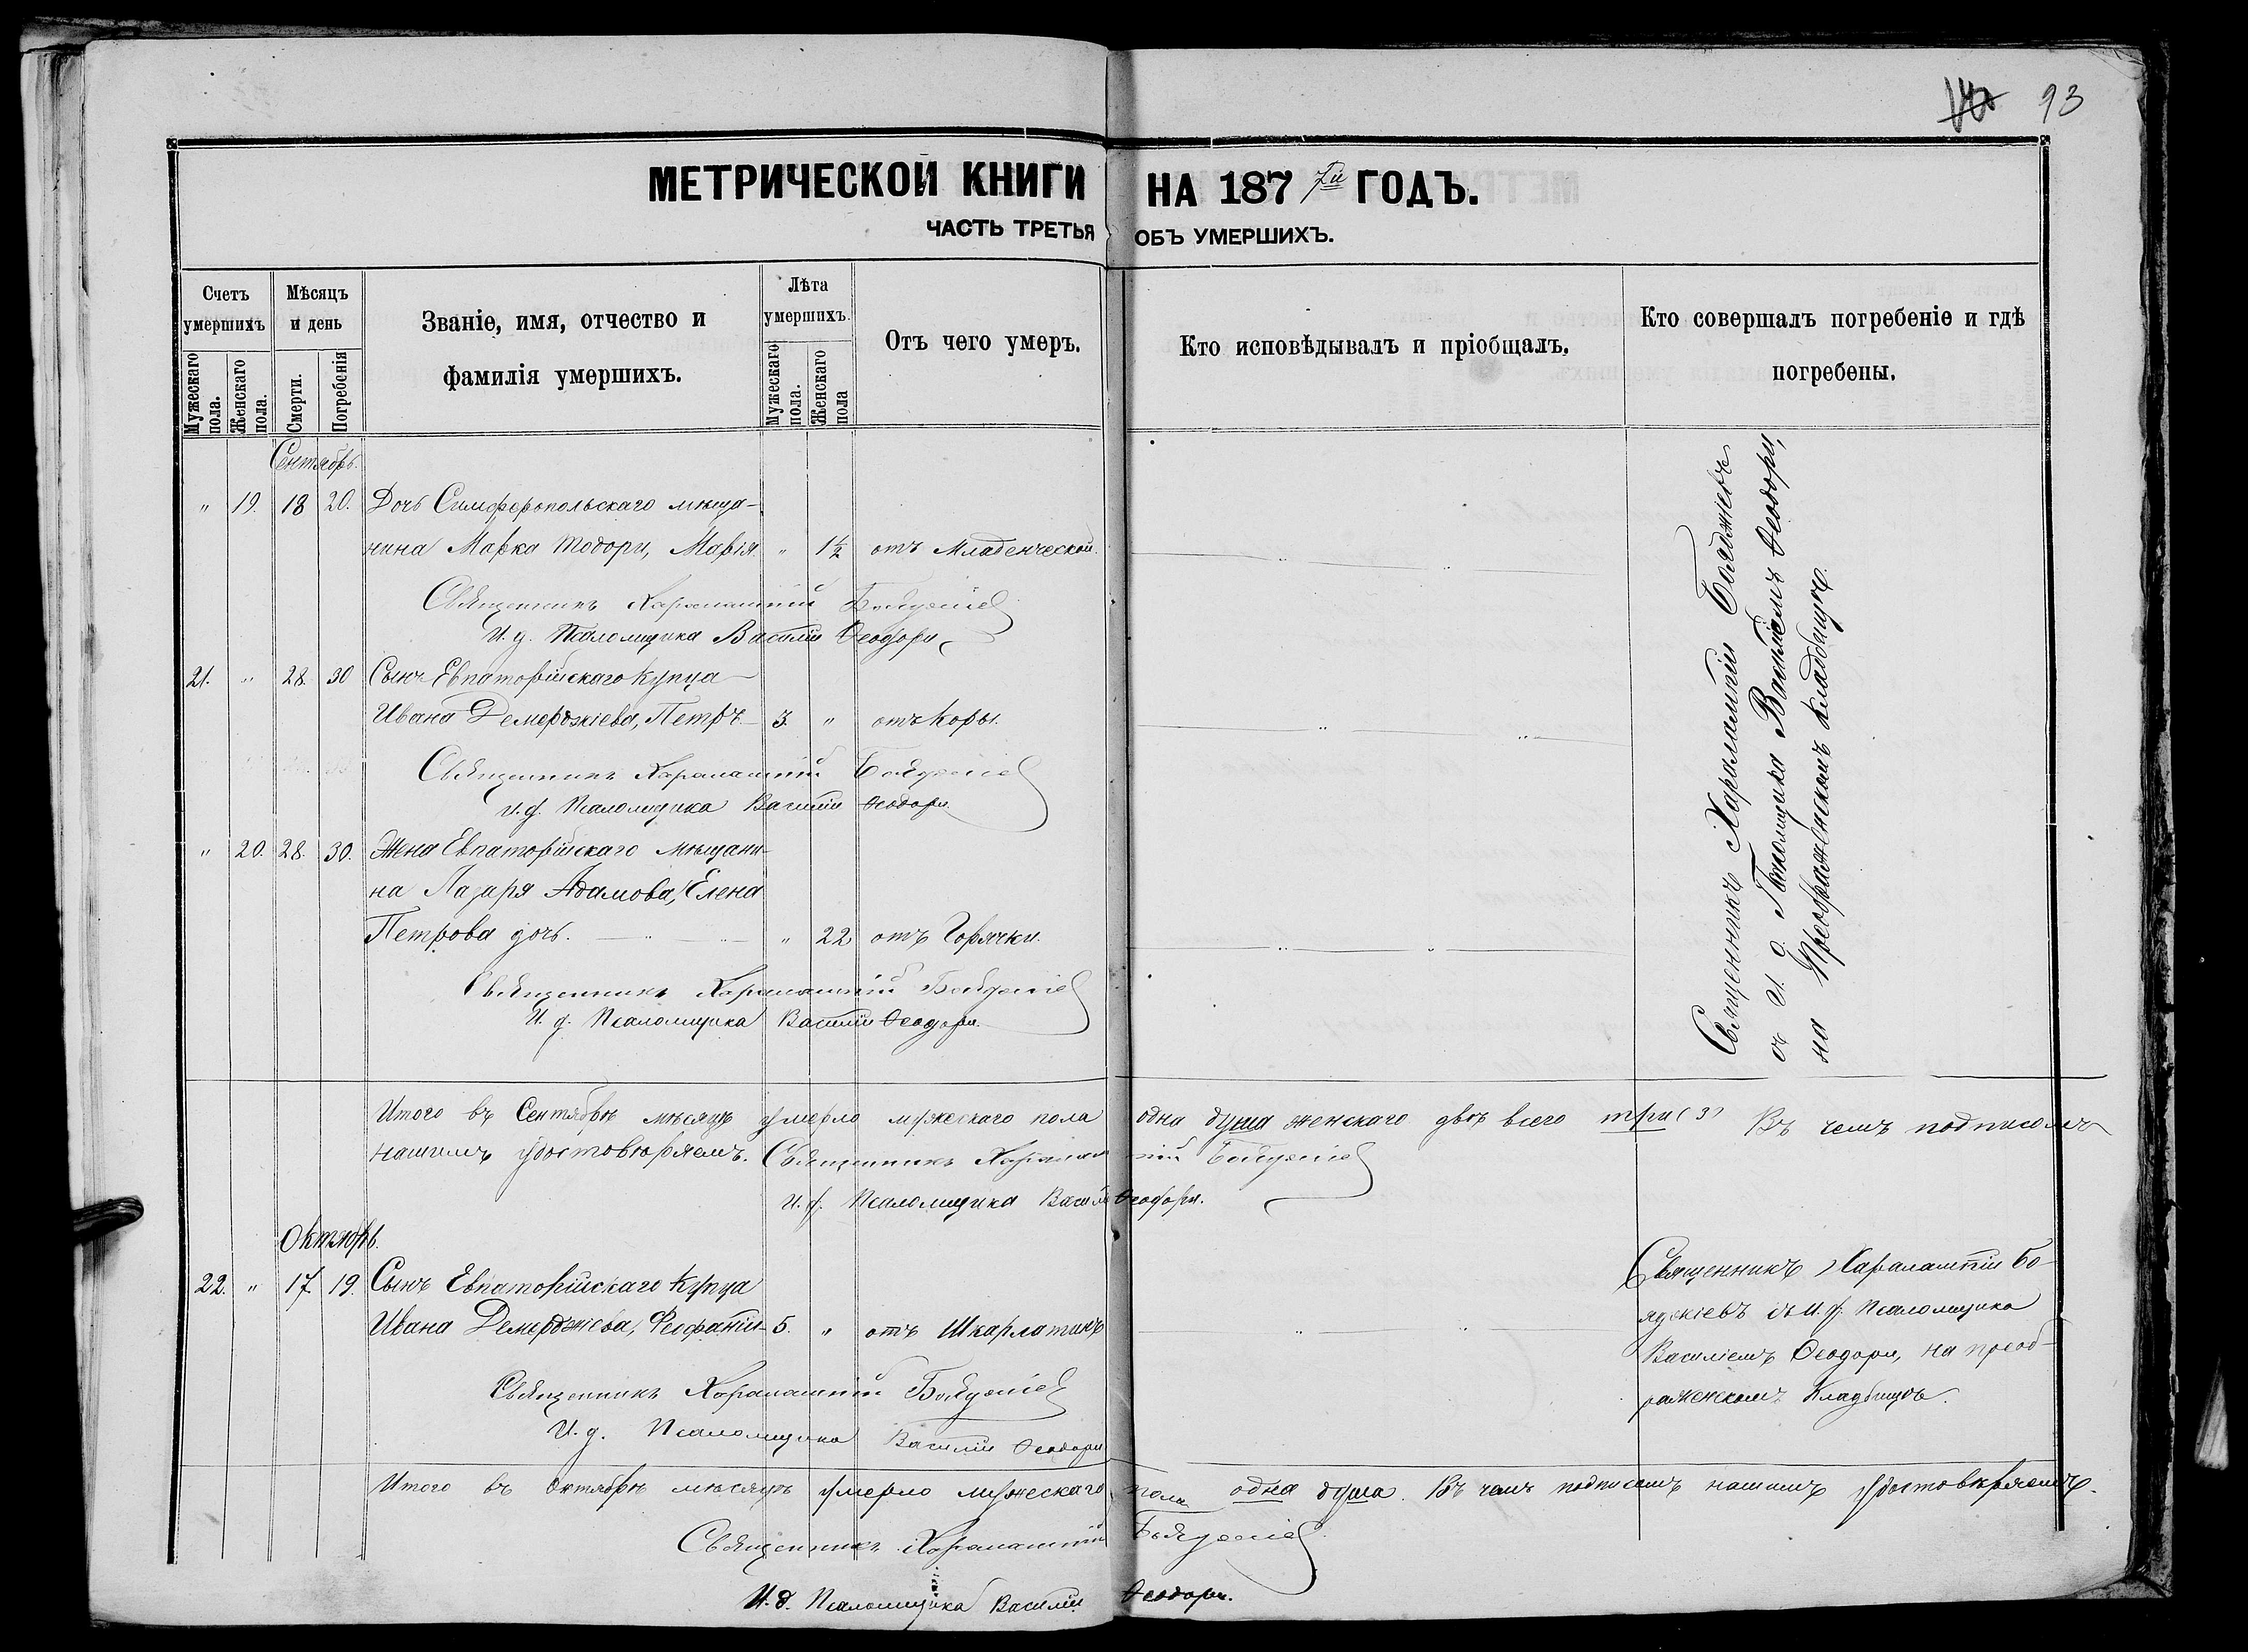 93
МЕТРИЧЕСКОЙ КНИГИ НА 1877й ГОДЪ.
ЧАСТЬ ТРЕТЬЯ ОБЪ УМЕРШИХЪ.
Счетъ умершихъ
Мужескаго пола.
Женскаго пола.
Мѣсяцъ и день
Смерти.
Погребенія
Званіе, имя, отчество и
фамилія умершихъ.
Лѣта умершихъ.
Мужескаго пола.
Женскаго пола
Отъ чего умеръ.
Кто исповѣдывалъ и пріобщалъ.
Кто совершалъ погребеніе и гдѣ
погребены.
Сентябрь.
" 19. 18 20. Дочь Симферопольскаго мѣща-
нина Марка Тодори, Марія " 1½ отъ Младенческой.
Священникъ Харалампій Бояджіев
И. д. Псаломщика Василій Ѳеодори
21. " 28. 30 Сынъ Евпаторійскаго Купца
Ивана Демерджіева, Петръ 3. " отъ Коры.
Священникъ Харалампій Бояджіев
И. д. Псаломщика Василій Ѳеодори
" 20. 28. 30. Жена Евпаторійскаго мѣщани-
на Лазаря Адамова, Елена
Петрова дочь. " 22 отъ Горячки.
Священникъ Харалампій Бояджіев
И. д. Псаломщика Василій Ѳеодори.
Священникъ Харалампій Бояджіевъ
съ И. д. Псаломщика Василіемъ Ѳеодори,
на Преображенскомъ Кладбищѣ.
Итого въ Сентябрѣ мѣсяцѣ умерло мужескаго пола одна душа женскаго двѣ всего три (3) Въ чемъ подписомъ
нашимъ удостовѣряемъ. Священникъ Харалампій Бояджіев
И. д. Псаломщика Василій Ѳеодори.
Октябрь.
22. " 17 19. Сынъ Евпаторійскаго Купца
Ивана Демерджіева, Феофаній 5. " отъ Шкарлатинъ
Священникъ Харалампій Бо-
яджіевъ съ И. д. Псаломщика
Василіемъ Ѳеодори, на преоб-
раженскомъ Кладбищѣ.
Священникъ Харалампій Бояджіев
И. д. Псаломщика Василій Ѳеодори
Итого въ Октябрѣ мѣсяцѣ умерло мужескаго пола одна душа. Въ чемъ подписомъ нашимъ удостовѣряемъ.
Священникъ Харалампій Бояджіев
И. д. Псаломщика Василій Ѳеодори.